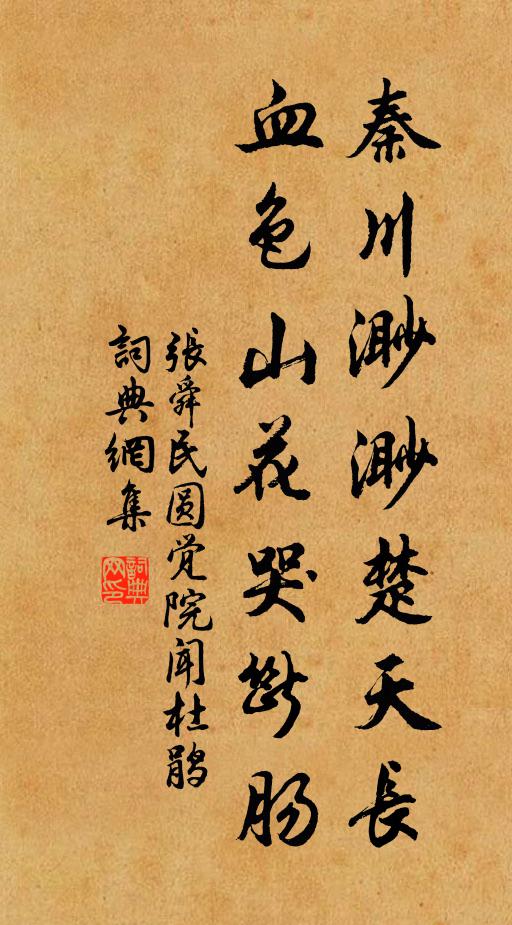 秦川渺渺楚天長
血色山花哭斷肠
張舜民圆觉院闻杜鹃
詞典網集
詞典网印